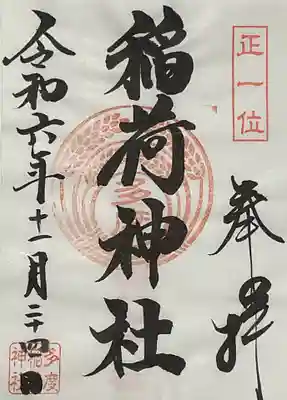 正一位
奉拝
稲荷神社
令和六年十一月二十四日
多度
神社